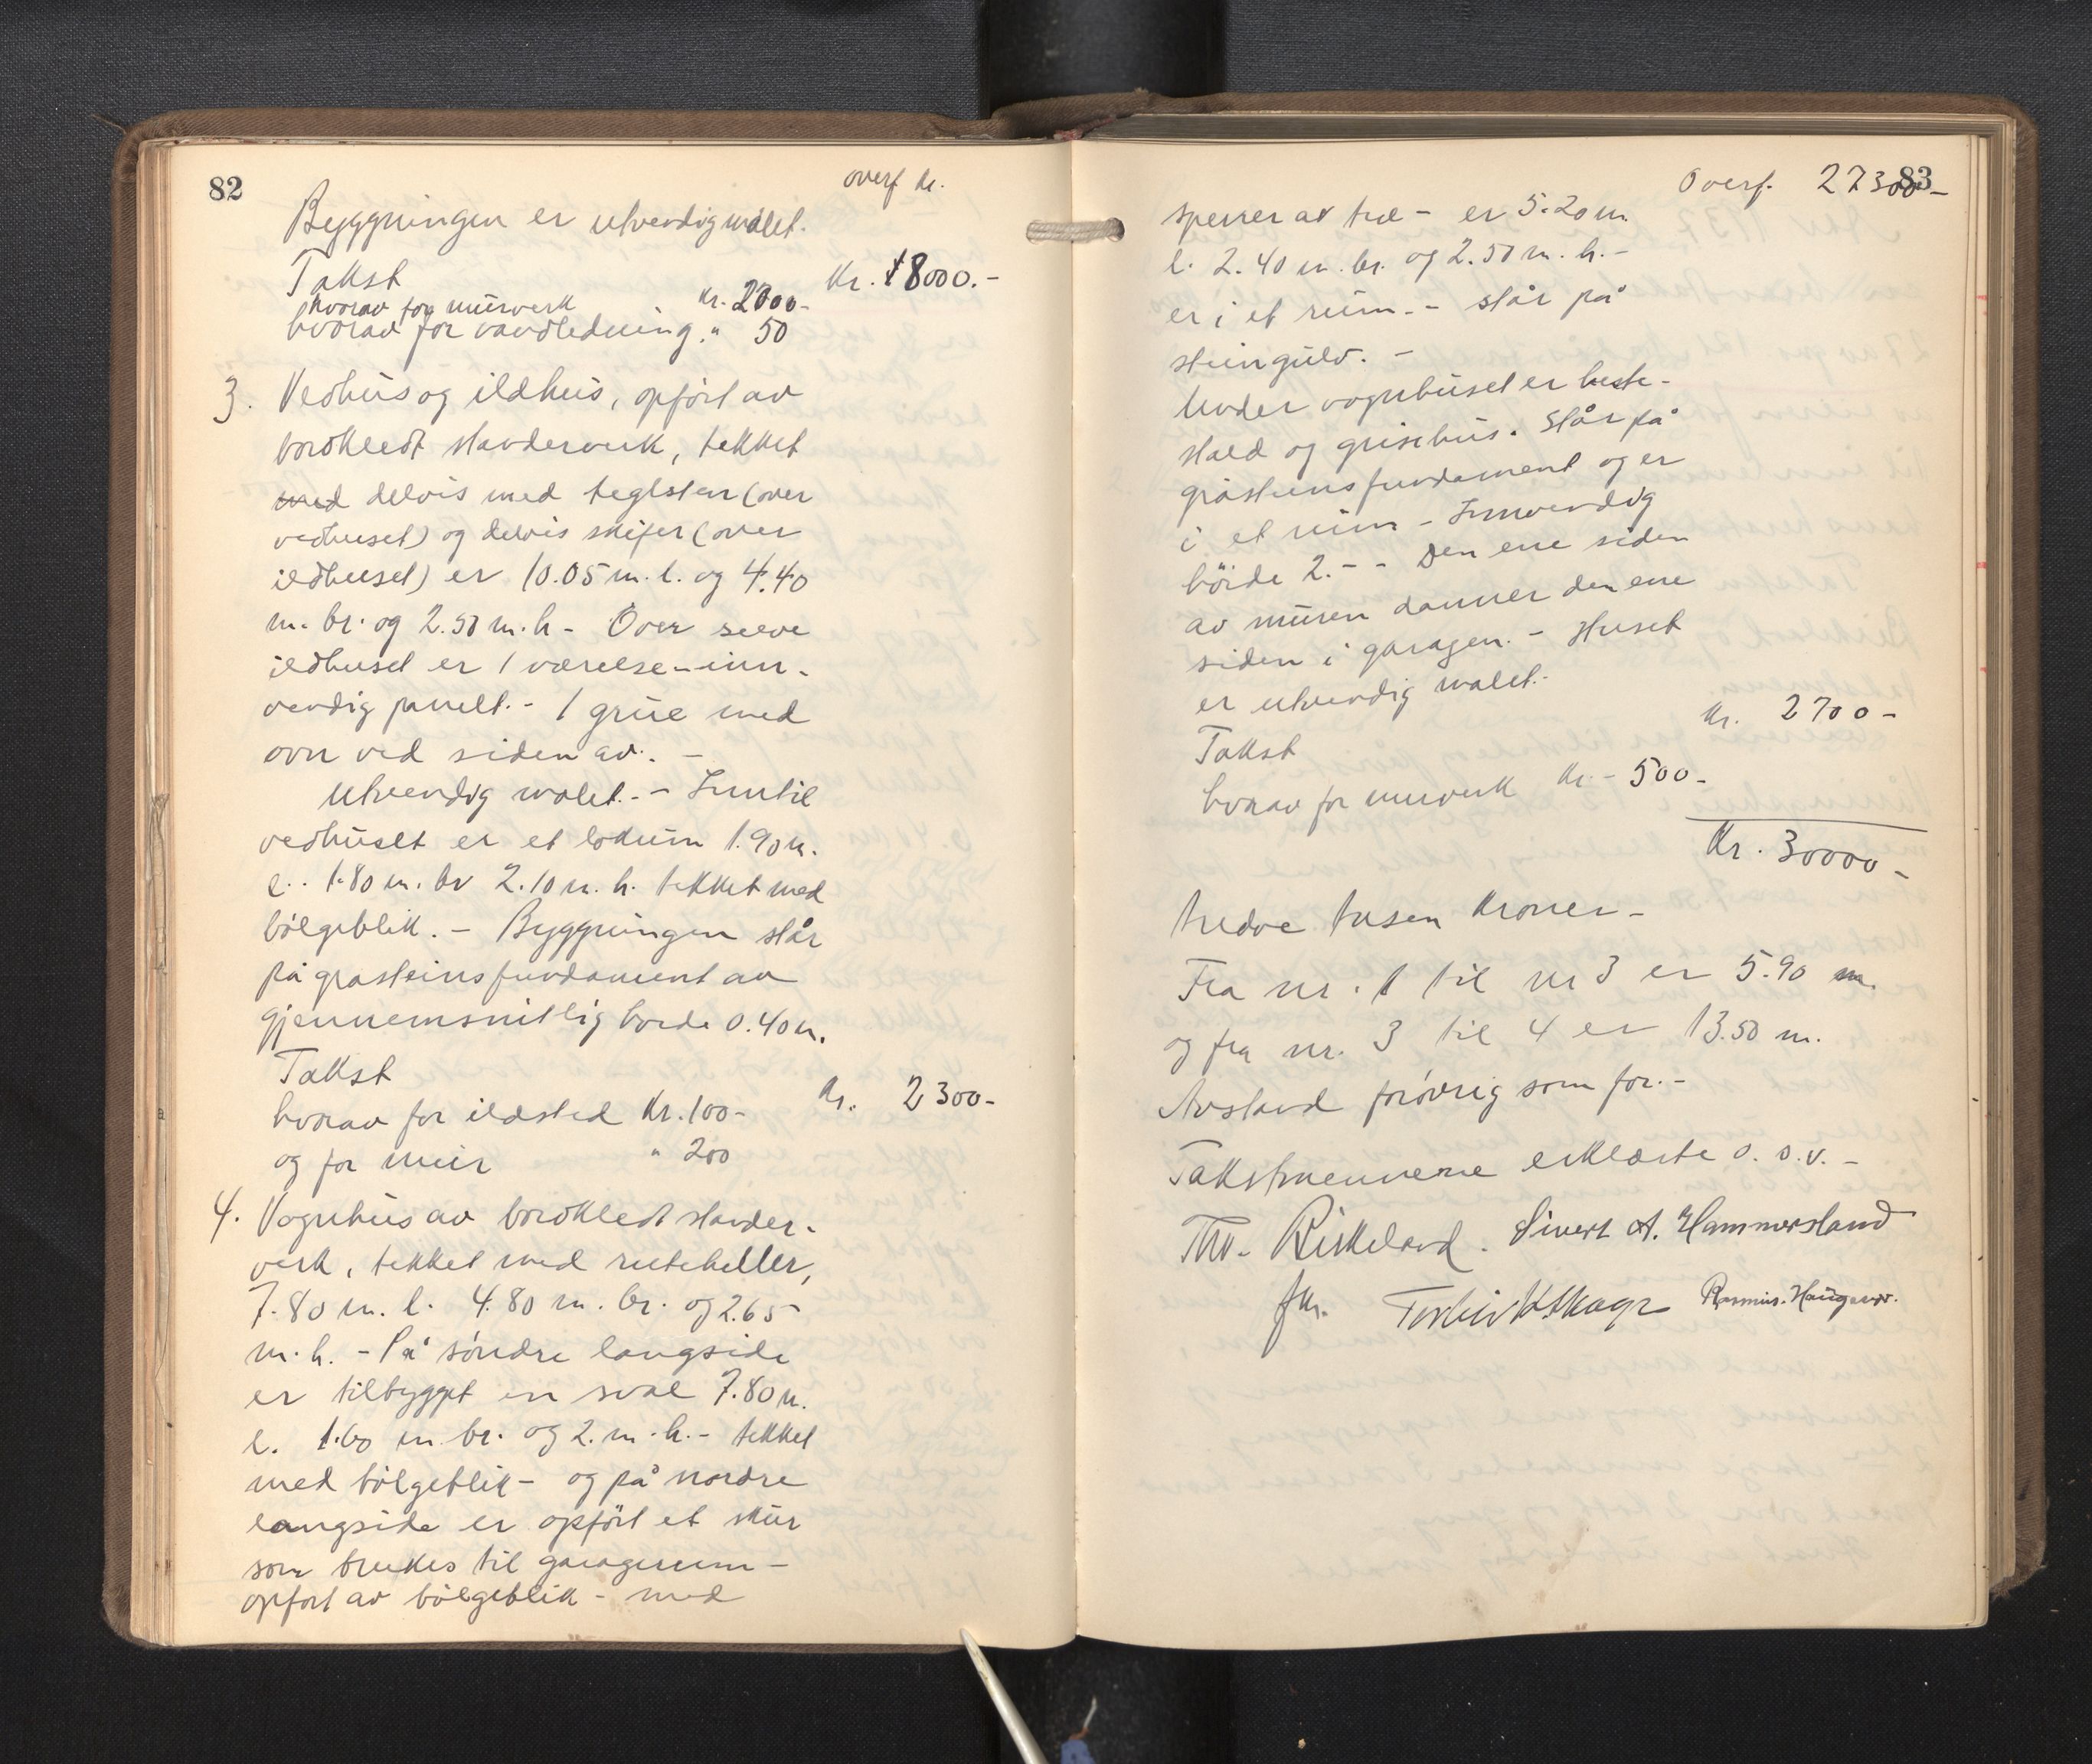 82
overf kr.
Byggningen er utvendig målet.
Takst Kr. 18000.-
hvorav for mürverk kr. 2700-
hvorav for vandledning. " 50
3. Vedhüs og ildhüs, opført av
bordkledt standerverk, tekket
med delvis med teglsten (over
vedhuset) og delvis skifer (over
ildhuset) er 10.05 m. l. og 4.40
m. br. og 2.50 m. h - Over selve
ildhuset er 1 værelse - inn-
vendig panelt. - 1 grüe med
ovn ved siden av. -
Utvendig malet. - Inntil
vedhuset er et lokum 1.90 m.
l. 1.80 m. br 2.10 m. h. tekket med
bölgeblik. - Byggningen står
på gråsteinsfundament av
gjennemsnitlig høide 0.40 m.
Takst
hvorav for ildsted Kr. 100- Kr. 2300-
og for müir " 200
4. Vognhüs av bordkledt stander-
verk, tekket med rutcheller,
7.80 m. l. 4.80 m. br. og 2.65
m. h. - På söndre langside
er tilbygget en sval 7.80 m.
l. 1.60 m. br. og 2. m. h. - tekket
med bölgeblik - og på nordre
langside er opfört et skür
som brukes til garagerum -
opført av bölgeblik - med
Overf. 27300-
83
sperrer av træ - er 5.20 m.
l. 2.40 m. br. og 2.50 m. h. -
er i et rüm. - står på
steingulv. -
Under vognhüset er heste-
stald og grisehüs. Står på
gråsteinsfundament og er
i et rüm - Innvendig
höide 2. - - Den ene siden
av müren danner den ene
siden i garagen. - Huset
er utvendig malet. -
Takst Kr. 2700-
hvorav for murverk Kr. - 500-
Kr. 30000-
tredve tusen Kroner -
Fra nr. 1 til nr 3 er 5.90 m.
og fra nr. 3 til 4 er 13.50 m.
Avstand forövrig som för. -
Takstmennerne erklærte o. s. v. -
Thv. Birkeland. Sivert A. Hammersland
fhv. Rasmus Haugen